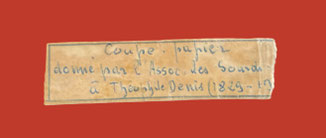 Coupe-papier
donné par l'Assoc. des Sourds
à Théophile Denis (1829-19